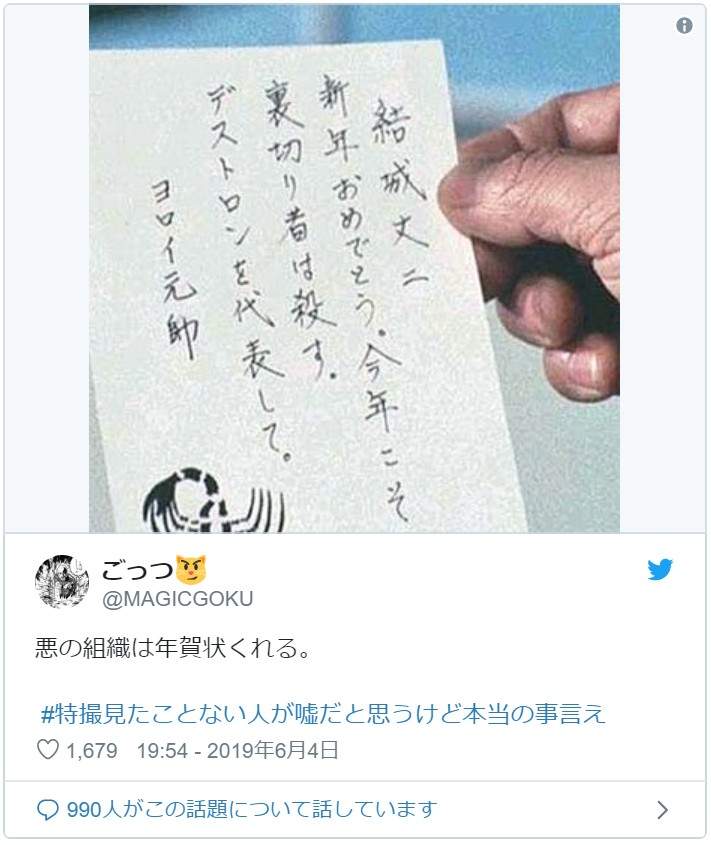 結城丈二
新年おめでとう。今年こそ
裏切り者は殺す。
デストロンを代表して。
ヨロイ元帥
ごっつ😼
@MAGICGOKU
悪の組織は年賀状くれる。
#特撮見たことない人が嘘だと思うけど本当の事言え
♡ 1,679 19:54 - 2019年6月4日
990人がこの話題について話しています